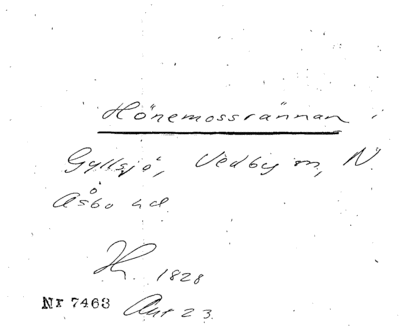 Hönemossrännan
Gyllsjö, Vedby sn, N.
Åsbo hd
1828
Nr 7463 Akt 23